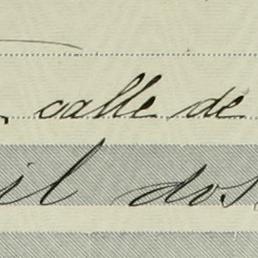 calle de
il dos